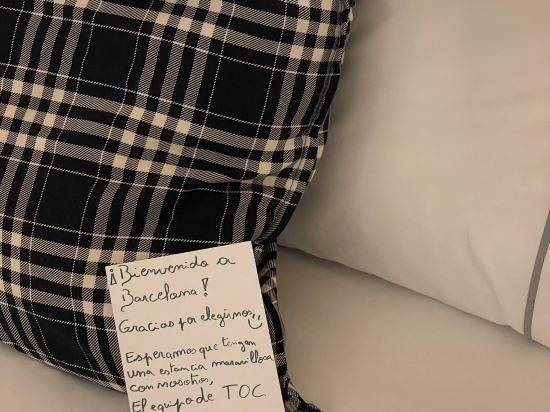 ¡Bienvenido a
Barcelona!
Gracias por elegirnos
Esperamos que tengan
una estancia maravillosa
con nosotros,
El equipo de TOC